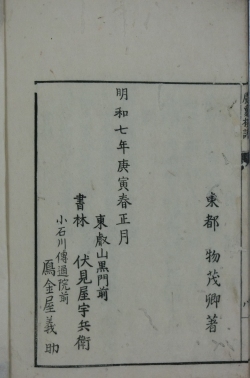 東都 物茂卿著
明和七年庚寅春正月
東叡山黒門前
書林 伏見屋宇兵衛
小石川傳通院前
鴈金屋義助